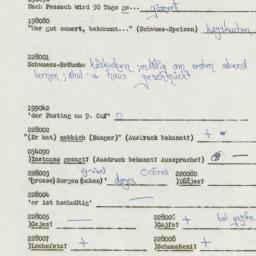 Nach Pessach wird 30 Tage ge... gomert
198080
"Wer gut omert, bekommt..." (Schwues-Speisen) kayskuchen
228001
Schwuess-Bräuche käskuchen; am ersten abend
lernen; shul & haus geschmückt
199042
'der Fasttag am 9. Ow' 0
228002
"(Er hat) nebbich (Hunger)" (Ausdruck bekannt?) +
034090
gesagt? (Ausdruck bekannt? Aussprache?) —
228003
'(grosse) Sorgen (haben)' dayes
220080
228004
'er ist hochmütig'
228005
Gajes? —
228006
Gajfe? +
228007
+
228008
+